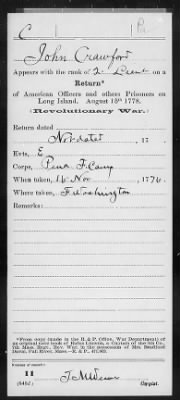 C 1 Pa
John Crawford
Appears with the rank of 2 Lieut on a
Return*
of American Officers and others Prisoners on
Long Island. August 15th 1778.
(Revolutionary War.)
Return dated
Not dated, 17 .
Evts, E
Corps, Penn F. Camp
When taken, 16 Nov, 1776.
Where taken, F Washington
Remarks:
*From copy (made in the R. & P. Office, War Department) of
an original
7th Mass. Regt., Rev. War, in the possession of Mrs. Bradford
Davol, Fall River, Mass.—R. & P., 471,963.
Number of record:
11
Copyist.